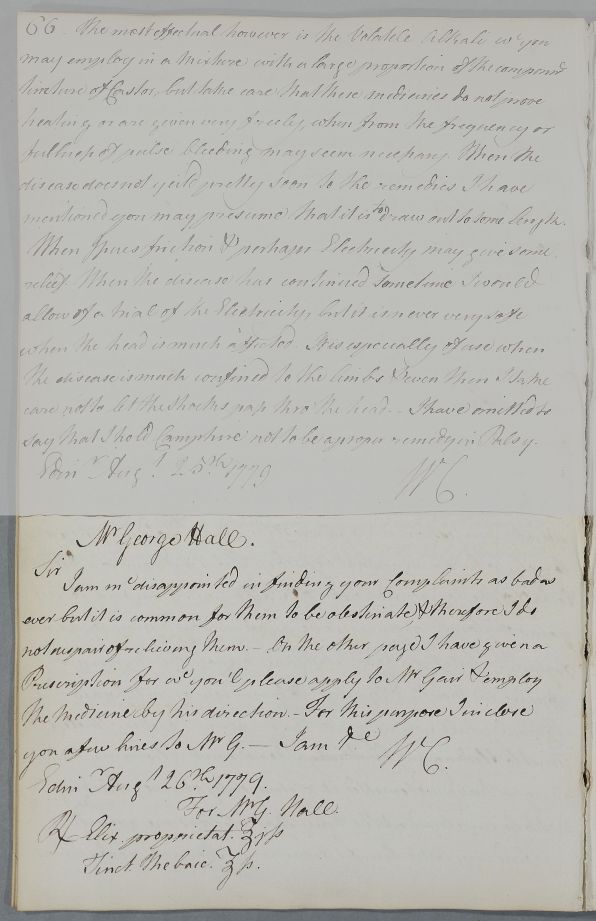 66. The most effectual however is the Volatile Alkali wc you
may employ in a mixture with a large proportion of the compound
tincture of Castor, but take care that these medicines do not prove
heating or are given very freely, when from the frequency or
fullness of pulse bleeding may seem necessary. When the
disease does not yield pretty soon to the remedies I have
mentioned you may presume that it is to draw out to some length.
When Spurs friction & perhaps Electricity may give some
relief. When the disease has continued sometime I would
allow of a trial of the Electricity, but it is never very safe
when the head is much affected. It is especially of use when
the disease is much confined to the limbs & even then I take
care not to let the shocks pass thro' the head - I have omitted to
say that I hold Camphire not to be a proper remedy in Palsy.
Edinr Augt 25th 1779 WC.
Mr George Hall.
Sir
I am mc disappointed in finding your Complaints as bad as
ever but it is common for them to be obstinate & therefore I do
not despair of relieving them. - On the other page I have given a
Prescription for wc you'l please apply to Mr Gair & employ
the medicine by his direction. - For this purpose I inclose
you a few lines to Mr G. - I am &c WC.
Edinr Augt 26th 1779.
For Mr G. Hall.
℞ Elix. proprietat. ℥jß
Tinct. Thebaic. ℥ß.